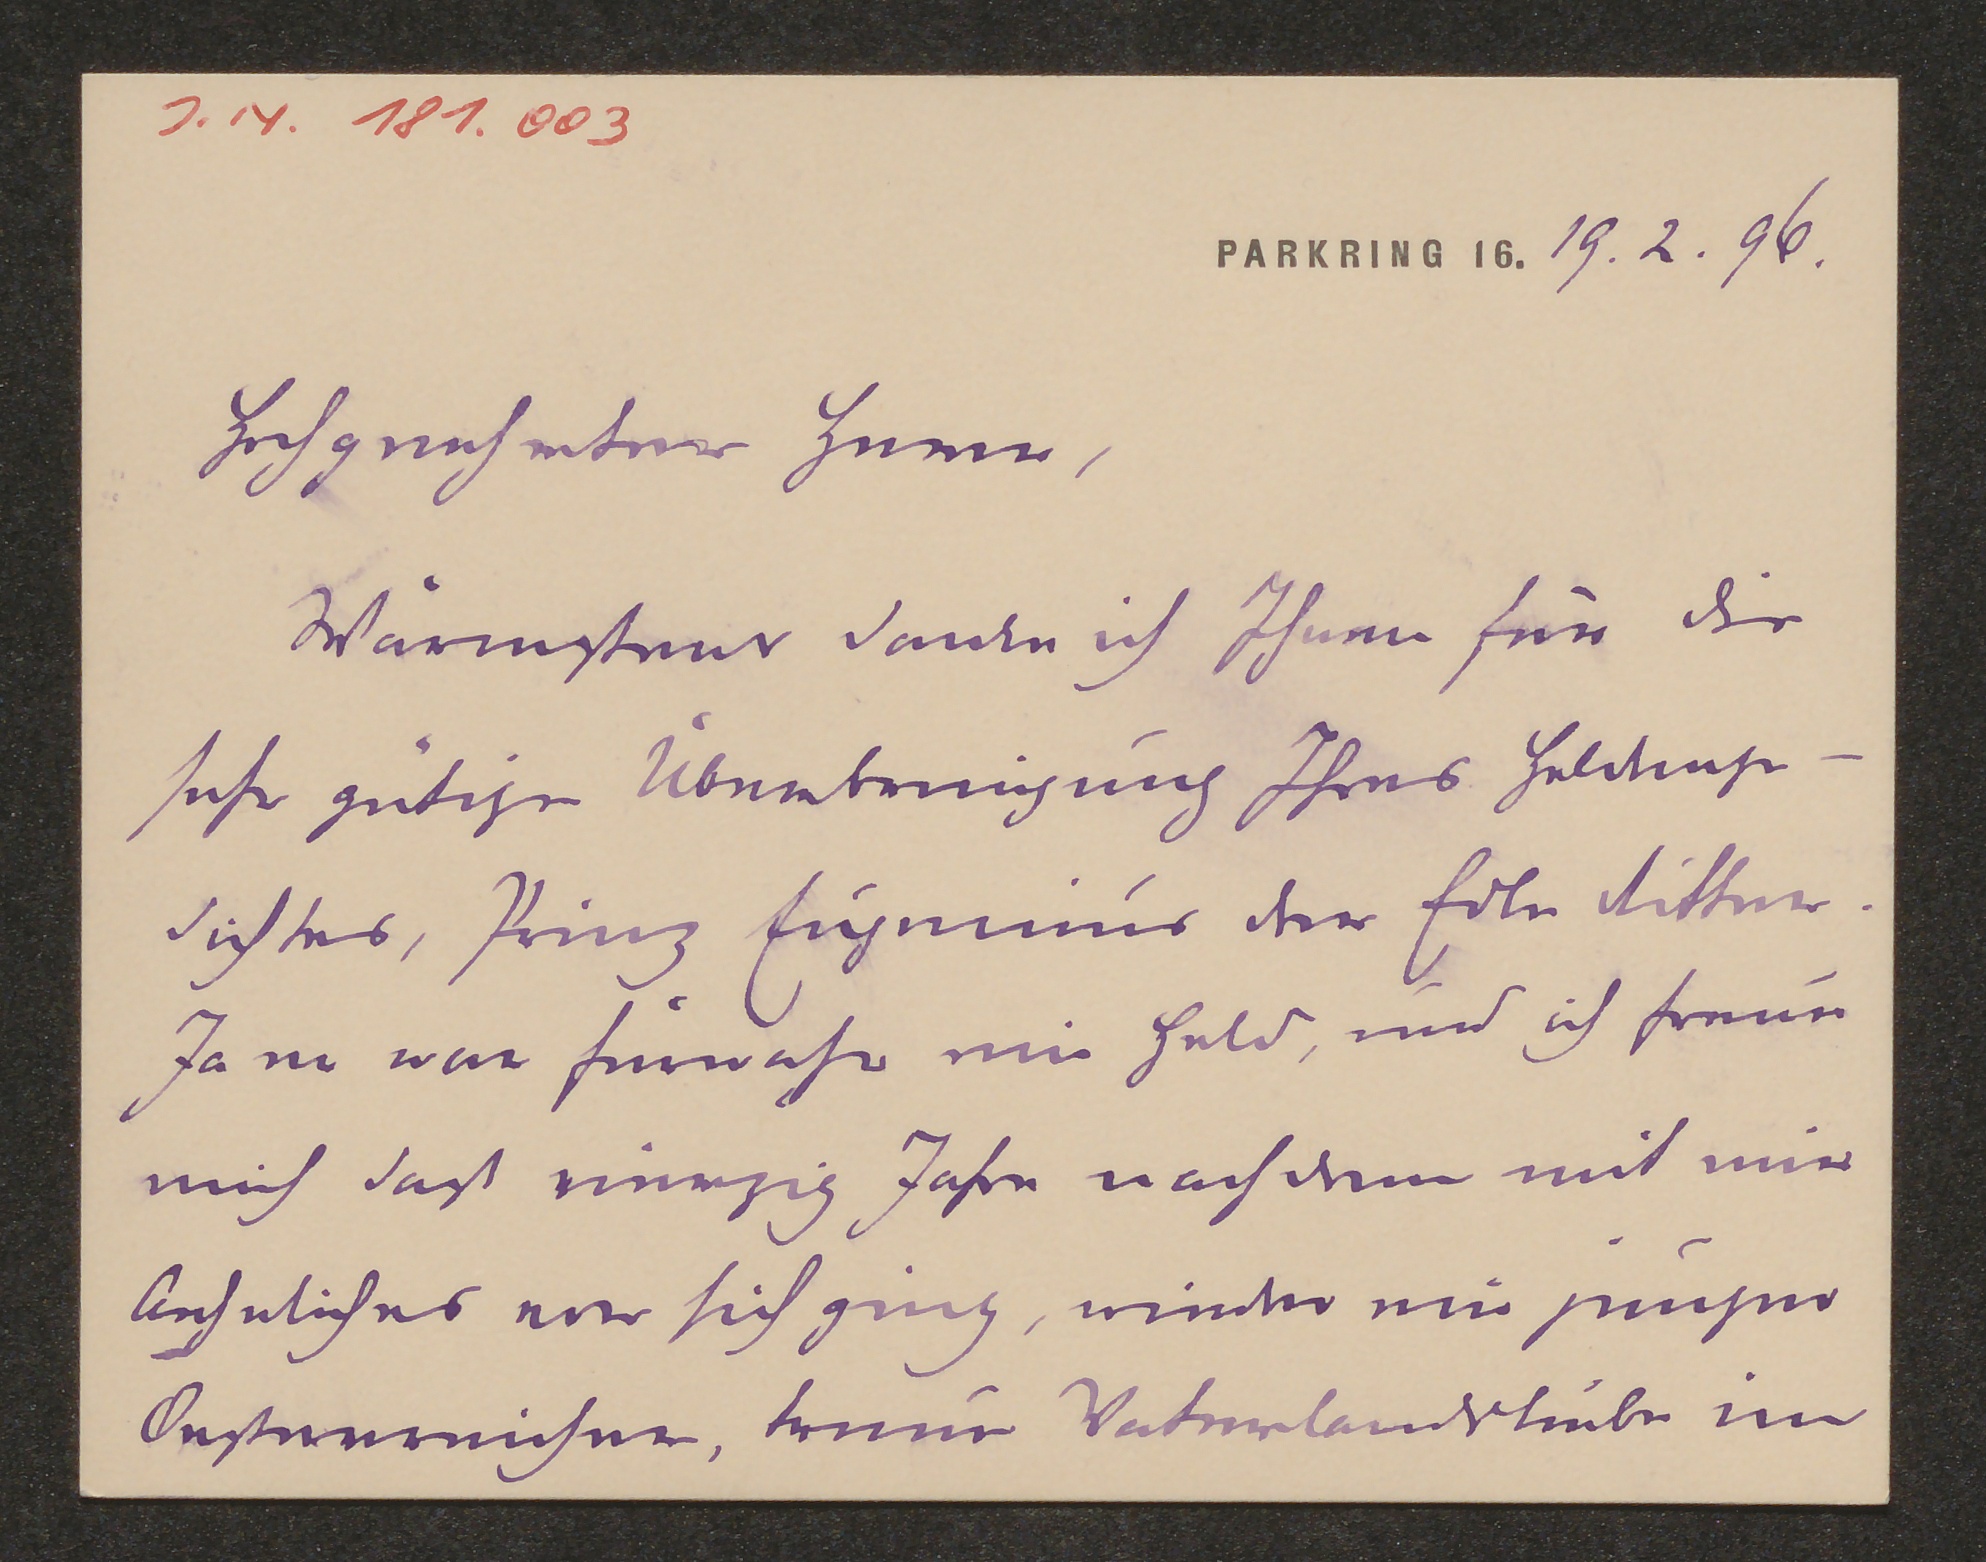 J.N. 181.003
PARKRING 16. 19. 2. 96.
Hochgeehrter Herr,
Wärmstens danke ich Ihnen für die
sehr gütige Überbringung Ihres Heldenge-
dichtes, Prinz Eugenius der Edle Ritter.
Ja er war fürwahr ein Held, und ich freue
mich daß vierzig Jahre nachdem mit mir
Aehnliches vor sich ging, wieder ein junger
Oesterreicher, treue Vaterlandsliebe im